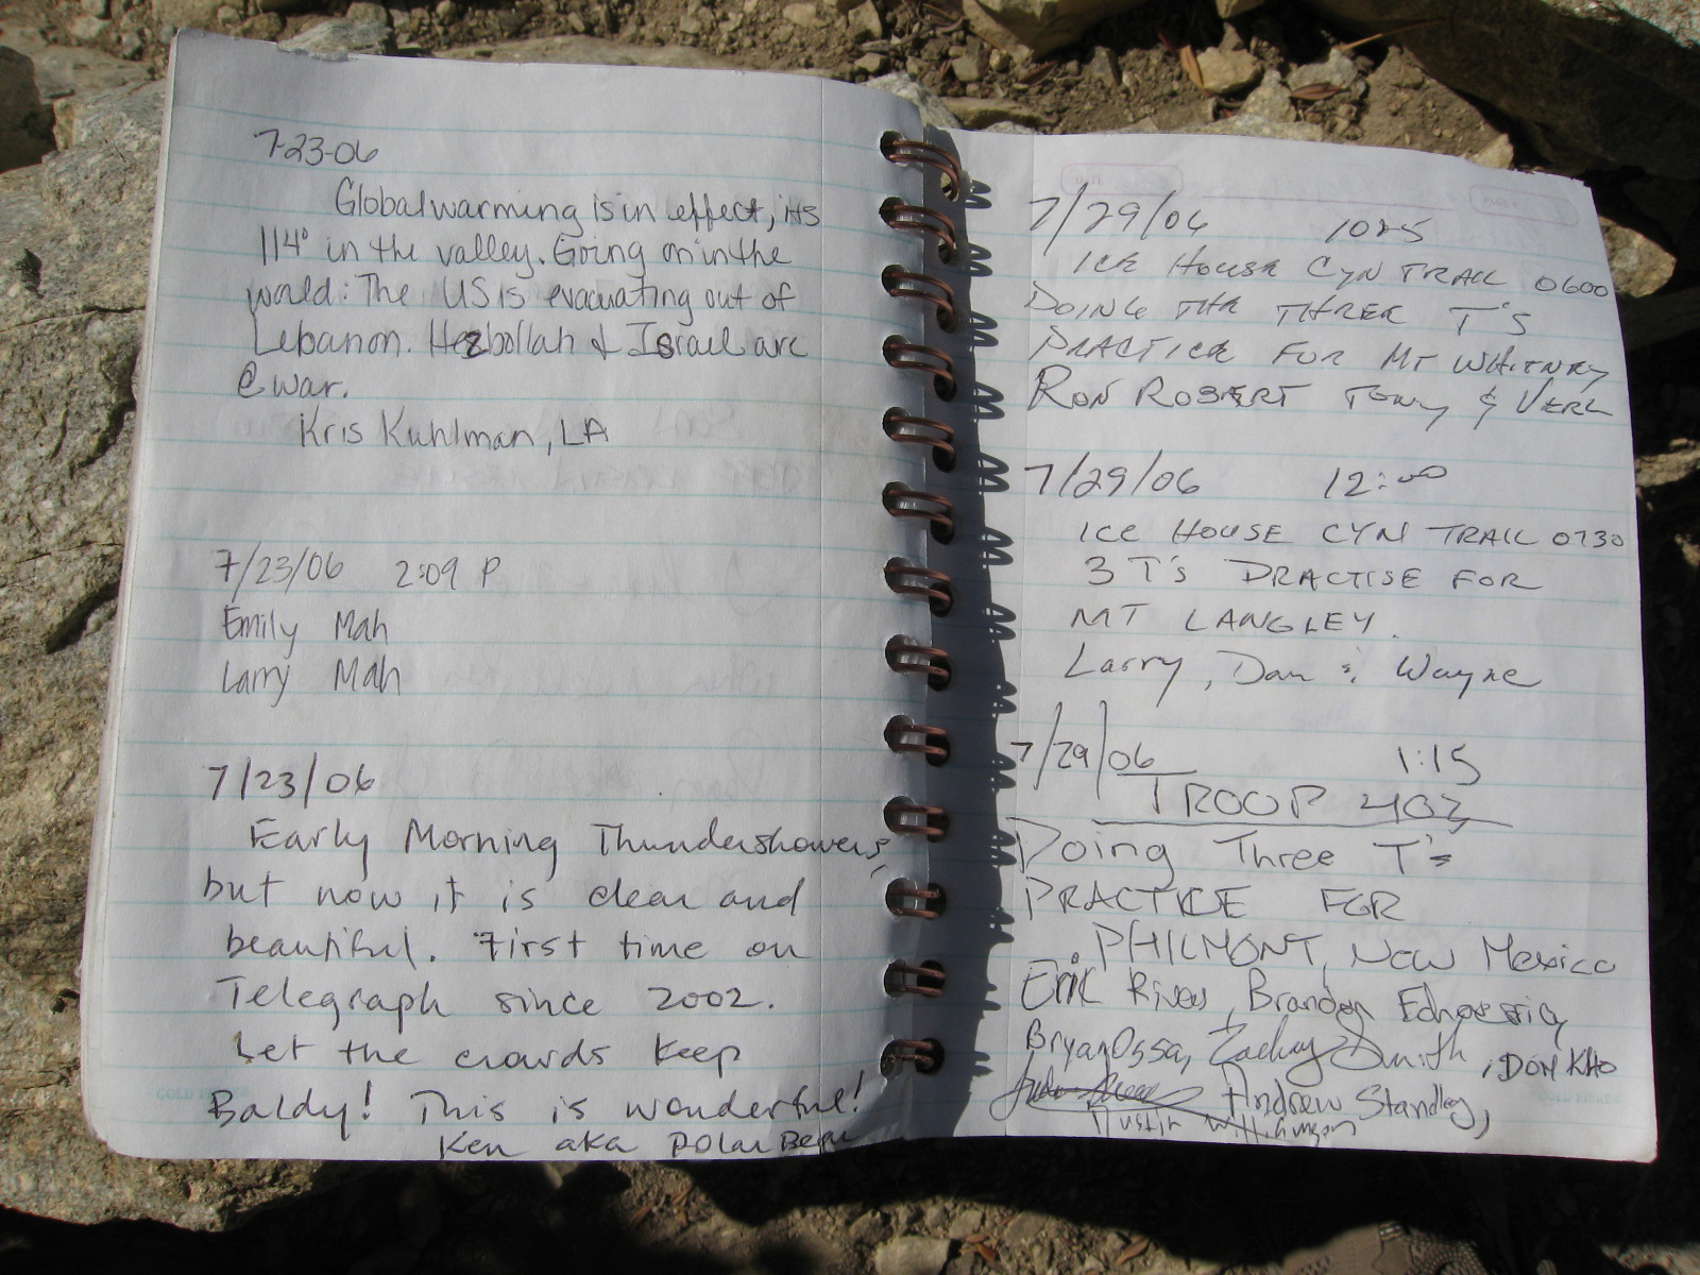 7-23-06
Global warming is in effect, its
114° in the valley. Going on in the
world: The US is evacuating out of
Lebanon. Hezbollah & Israel are
@ war.
Kris Kuhlman, LA
7/23/06 2:09 P
Emily Mah
Larry Mah
7/23/06
Early Morning Thundershowers,
but now it is clear and
beautiful. First time on
Telegraph since 2002.
Let the crowds keep
Baldy! This is wonderful!
Ken aka Polar Bear
7/29/06 1025
ICE HOUSE CYN TRAIL 0600
DOING THE THREE T'S
PRACTICE FOR MT WHITNEY
RON ROBERT TONY & VERL
7/29/06 12:00
ICE HOUSE CYN TRAIL 0730
3 T's PRACTISE FOR
MT LANGLEY.
Larry, Dan & Wayne
7/29/06 1:15
TROOP 402
Doing Three T's
PRACTICE FOR
PHILMONT, New Mexico
Eric Rivas, Brandon
Bryan Ossa, Zachay Smith, DON KHO
Andrew Standley,
Dustin Williamson